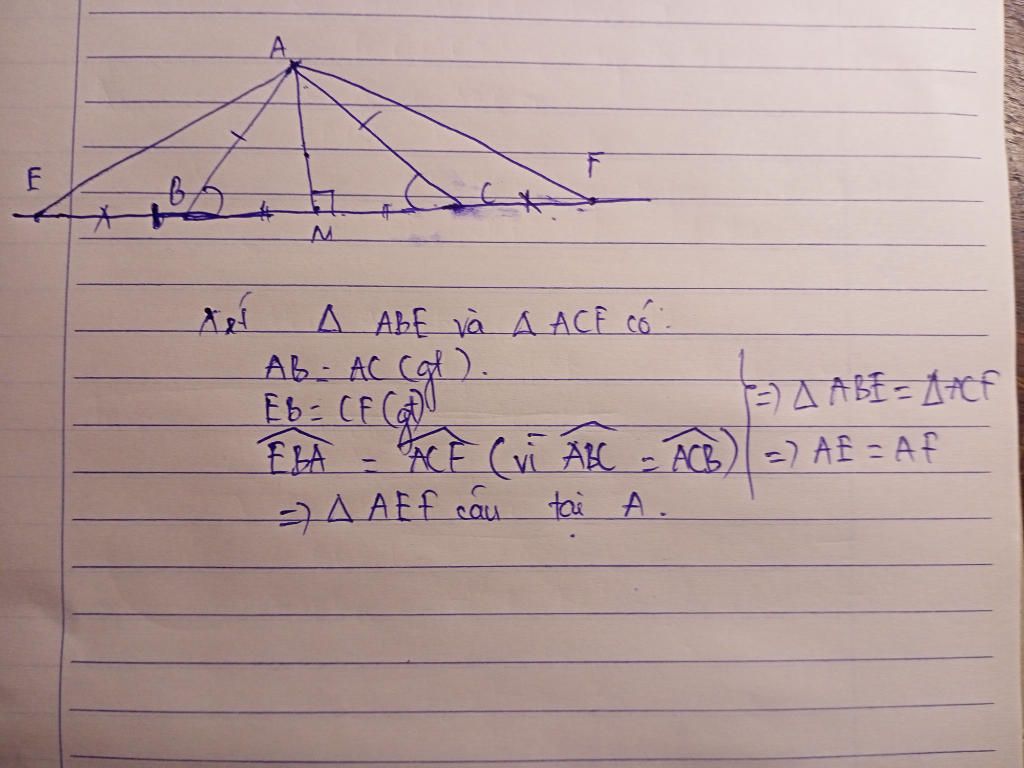 A
E
B
C
F
M
Xét Δ ABE và Δ ACF có:
AB = AC (gt).
EB = CF (gt)
EBA = ACF (vì ABC = ACB)
=) Δ ABE = ΔACF
=) AE = AF
=) Δ AEF cân tại A.